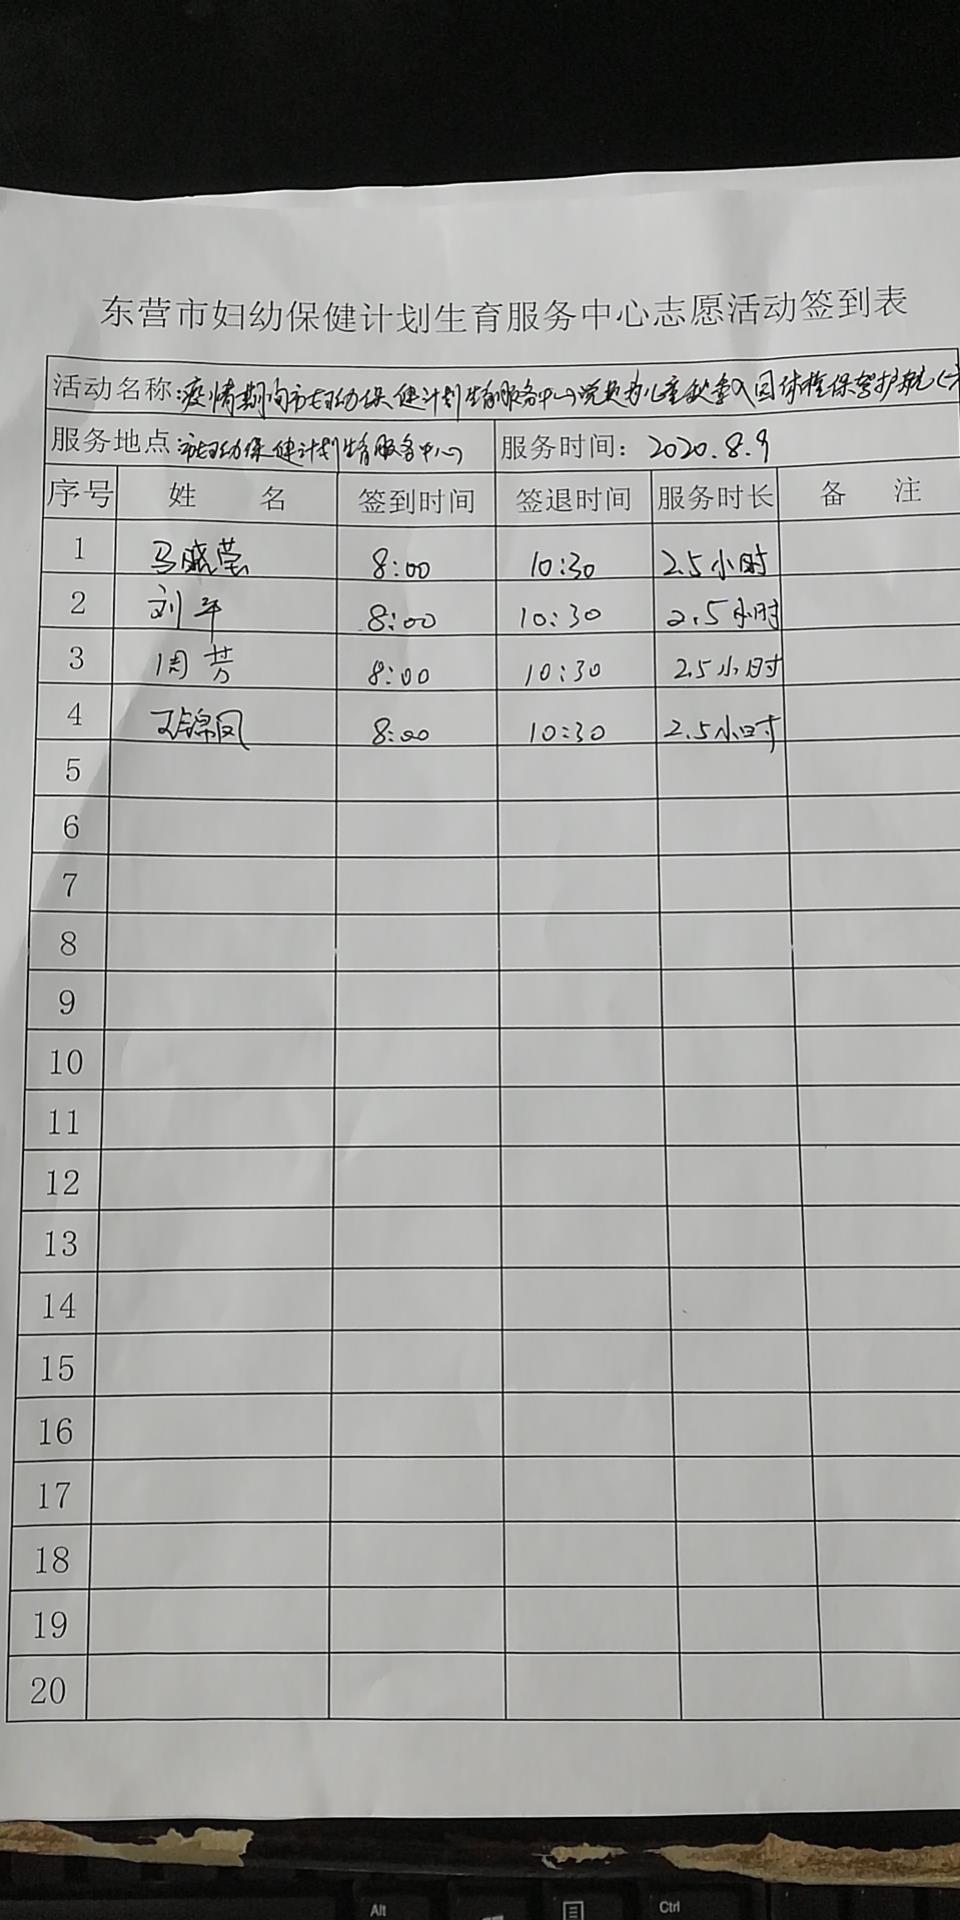 东营市妇幼保健计划生育服务中心志愿活动签到表
活动名称:疫情期间市妇幼保健计划生育服务中心党员为儿童秋季入园体检保驾护航(
服务地点:市妇幼保健计划生育服务中心 服务时间: 2020.8.9
序号 姓 名 签到时间 签退时间 服务时长 备 注
1 马晓莹 8:00 10:30 2.5小时
2 刘平 8:00 10:30 2.5小时
3 周芳 8:00 10:30 2.5小时
4 王锦凤 8:00 10:30 2.5小时
5
6
7
8
9
10
11
12
13
14
15
16
17
18
19
20
Alt Ctrl